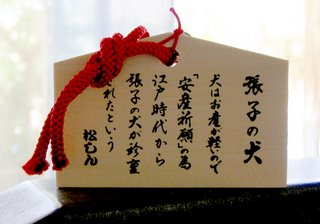 張子の犬
犬はお産が軽いので
「安産祈願」の為
江戸時代から
張子の犬が珍重
されたという
松もん